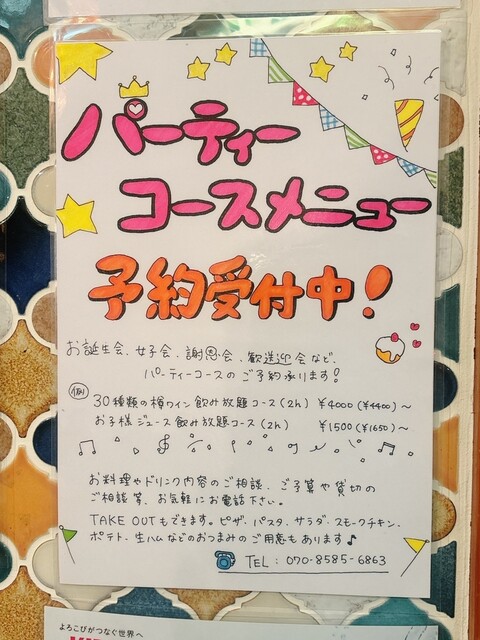 パーティー
コースメニュー
予約受付中!
お誕生会、女子会、謝恩会、歓送迎会など、
パーティーコースのご予約承ります!
例 30種類の樽ワイン飲み放題コース(2h) ¥4000(¥4400)~
お子様ジュース飲み放題コース(2h) ¥1500(¥1650)~
お料理やドリンク内容のご相談、ご予算や貸切の
ご相談等、お気軽にお電話下さい。
TAKE OUTもできます。ピザ、パスタ、サラダ、スモークチキン、
ポテト、生ハムなどのおつまみのご用意もあります♪
TEL:070-8585-6863
よろこびがつなぐ世界へ